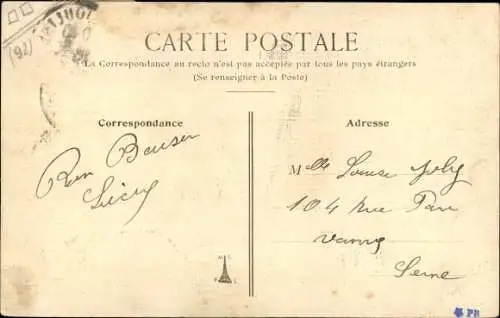 (92)
CARTE POSTALE
La Correspondance au recto n'est pas acceptée par tous les pays étrangers
(Se renseigner à la Poste)
Correspondance
Adresse
Bon Baiser
Lucy
Melle Louise Joly
104 Rue
Vanves
Seine
PB